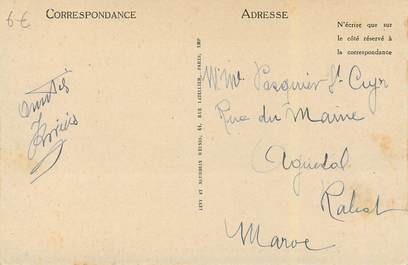 6€
CORRESPONDANCE
ADRESSE
N'écrire que sur
le côté réservé à
la correspondance
Amitiés
LÉVY ET NEURDEIN RÉUNIS, 44, RUE LETELLIER, PARIS, IMP
Pasquier St Cyr
Rue du Maine
Aguedal
Rabat
Maroc